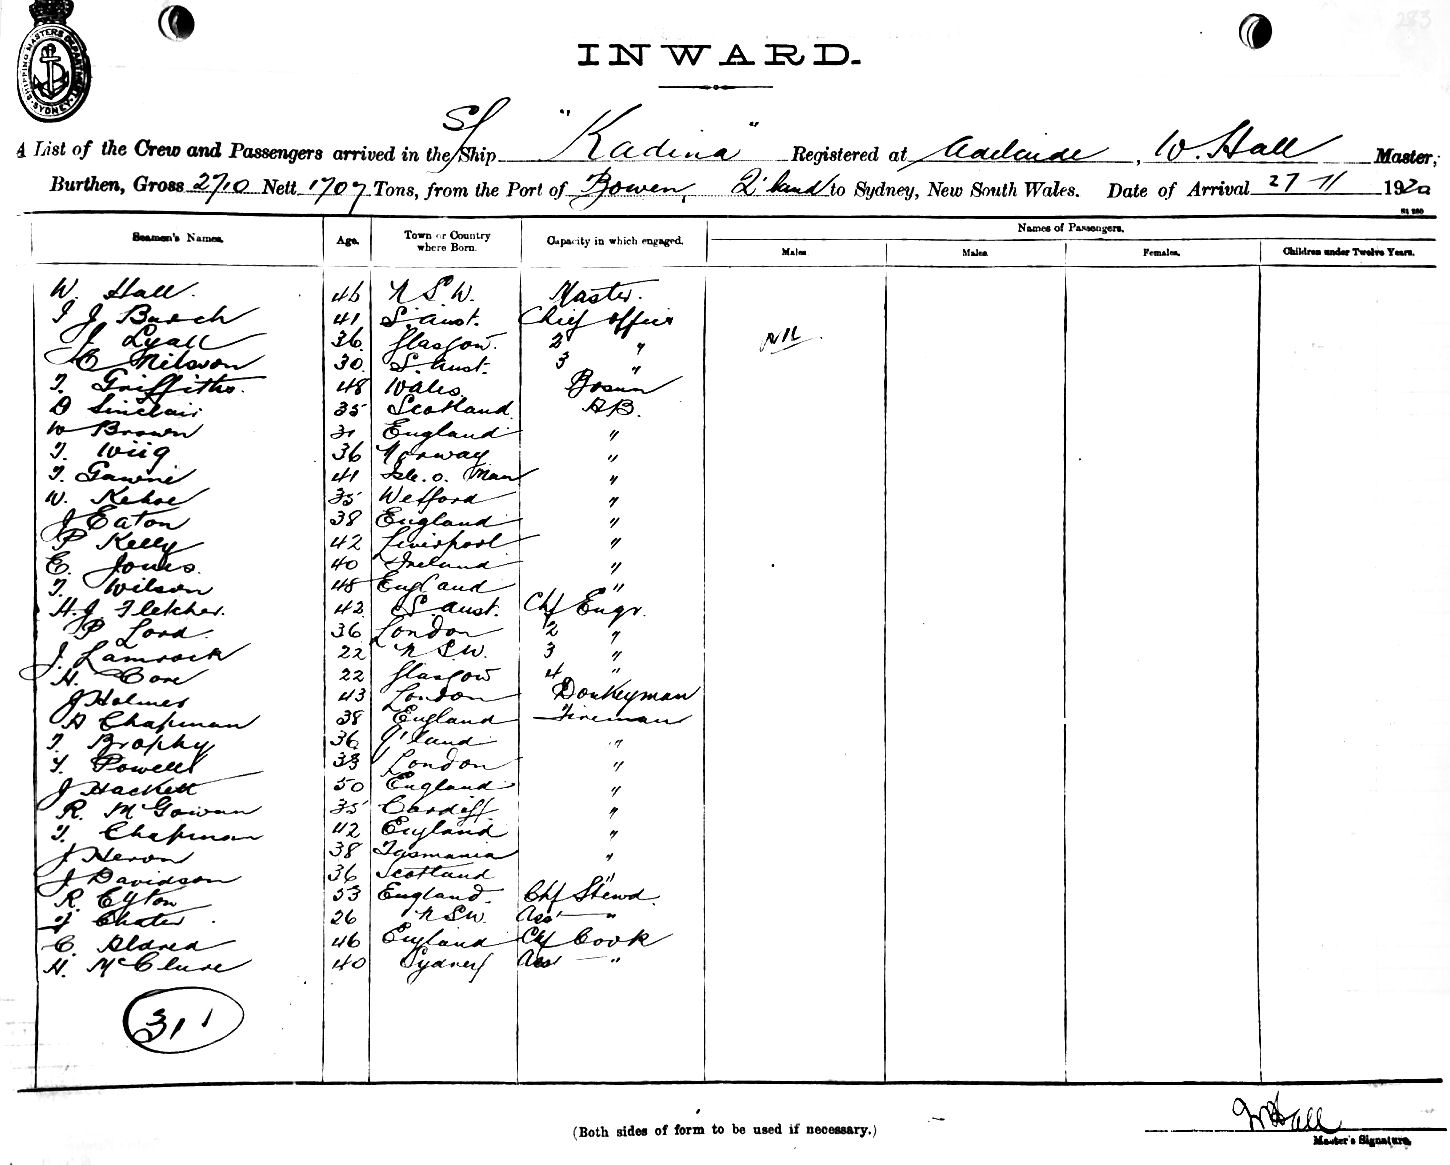 283
SHIPPING MASTERS DEPARTMENT SYDNEY
INWARD.
A List of the Crew and Passengers arrived in the S/Ship "Kadina" Registered at Adelaide, W. Hall Master,
Burthen, Gross 2710 Nett 1707 Tons, from the Port of Bowen, Q'land to Sydney, New South Wales. Date of Arrival 27 11 1920
Seamen's Names. Age. Town or Country where Born. Capacity in which engaged. Names of Passengers.
Males Males Females. Children under Twelve Years.
W. Hall. 46 N S W. Master.
J Busch 41 S. Aust. Chief Officer
J Lyall 36 Glasgow. 2 "
C Nilsson 30. S. Aust. 3 "
Nil
T. Griffiths. 48 Wales. Bosun
D Sinclair 35 Scotland AB.
W Brown 31 England "
T. Wiig 36 Norway "
T. Gawne 41 Isle. o. Man "
W. Kehoe 35 Wexford "
J Eaton 38 England "
P Kelly 42 Liverpool "
E. Jones. 40 Ireland "
T. Wilson 48 England "
H. J Fletcher. 42 S. Aust. Chf Engr.
P Lord. 36 London 2 "
J. Lamrock 22 N S W. 3 "
H. Core 22 Glasgow 4 "
J Holmes 43 London Donkeyman
A Chapman 38 England Fireman
T. Brophy 36 Q'land "
T. Powell 33 London "
J Hackett 50 England "
R. McGowan 35 Cardiff "
T. Chapman 42 England "
J Heron 38 Tasmania "
J Davidson 36 Scotland "
R. Eyton 53 England. Chf Stewd.
J Chater 26 N S W. Ass' "
C. Aldred 46 England Chf Cook
H. McClure 40 Sydney Ass' "
31
(Both sides of form to be used if necessary.)
W Hall
Master's Signature.